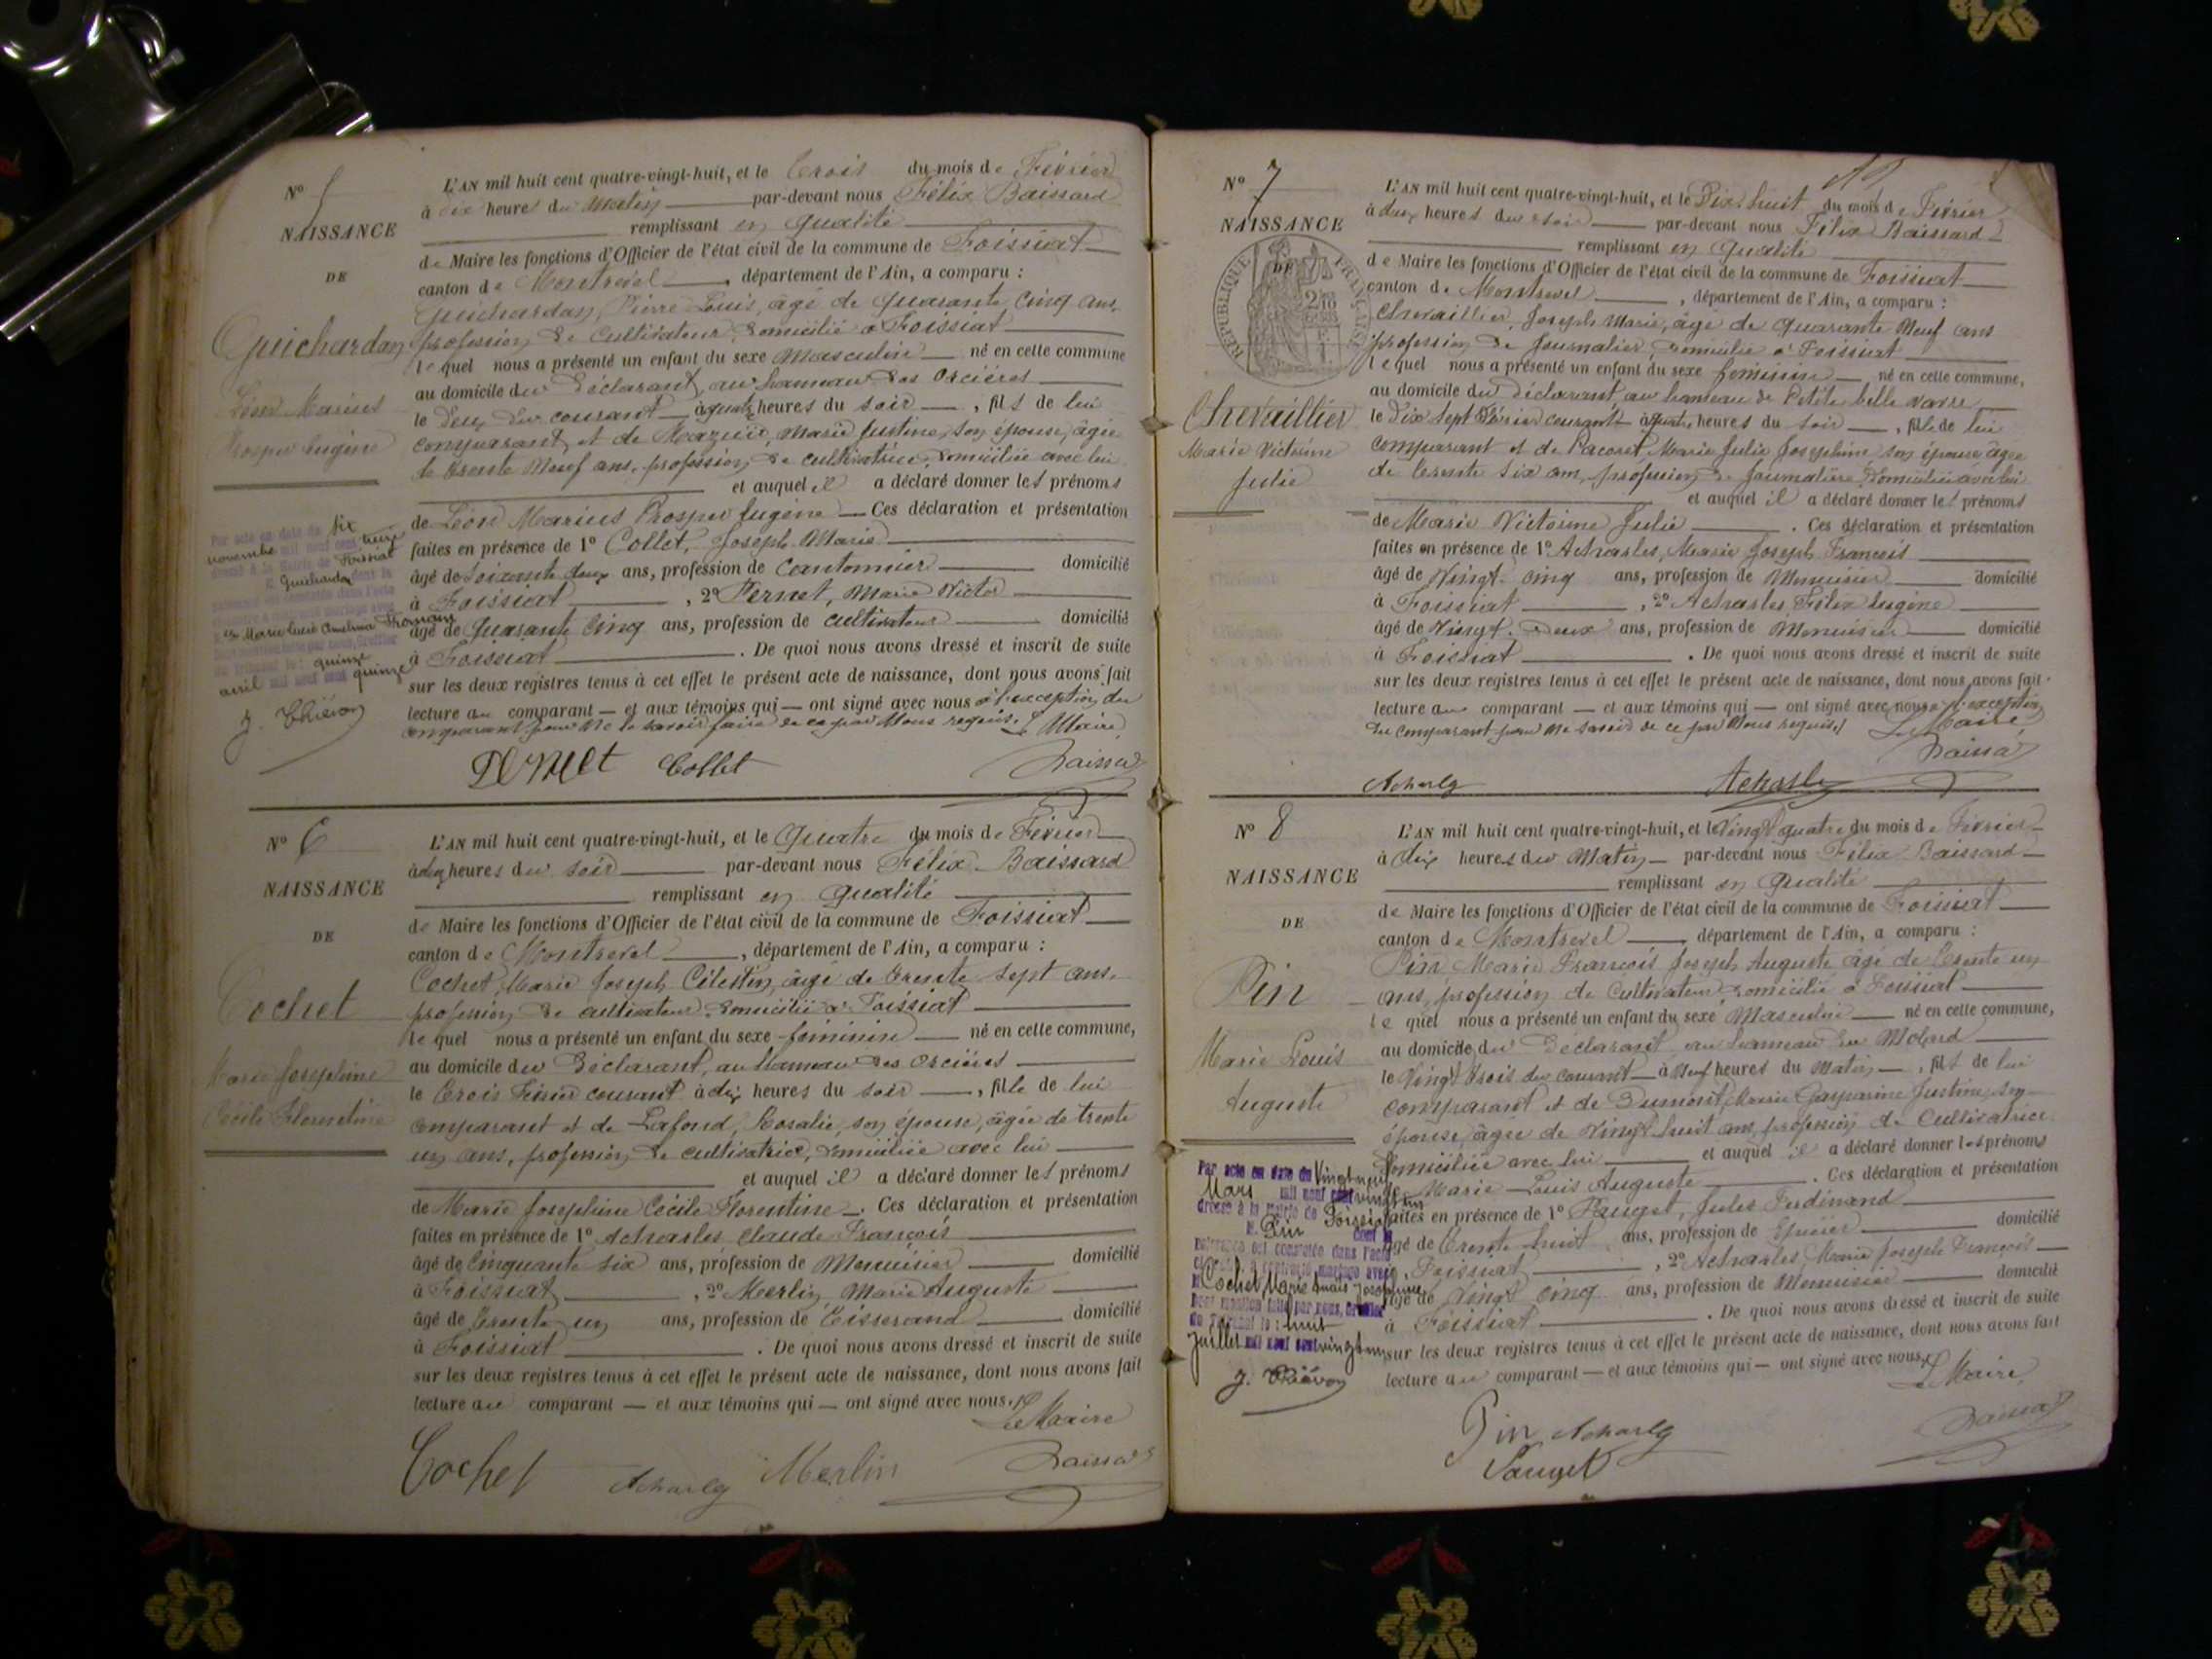 N° 5
NAISSANCE
DE
Guichardan
Léon Marius
Prosper Eugène
L'AN mil huit cent quatre-vingt-huit, et le Trois du mois de Février
à dix heures du Matin par-devant nous Félix Baissard
remplissant en qualité
de Maire les fonctions d'Officier de l'état civil de la commune de Foissiat
canton de Montrevel, département de l'Ain, a comparu :
Guichardan, Pierre Louis, âgé de quarante cinq ans,
profession de cultivateur, domicilié à Foissiat
lequel nous a présenté un enfant du sexe Masculin né en cette commune
au domicile du déclarant, au hameau des Orcières
le deux du courant à quatre heures du soir, fils de lui
comparant et de Mazuir, Marie Justine, son épouse, âgée
de trente neuf ans, profession de cultivatrice, domiciliée avec lui
et auquel il a déclaré donner les prénoms
de Léon Marius Prosper Eugène Ces déclaration et présentation
faites en présence de 1° Collet, Joseph Marie
âgé de soixante deux ans, profession de Cantonnier domicilié
à Foissiat, 2° Pernet, Marie Victor
âgé de quarante cinq ans, profession de cultivateur domicilié
à Foissiat. De quoi nous avons dressé et inscrit de suite
sur les deux registres tenus à cet effet le présent acte de naissance, dont nous avons fait
lecture au comparant — et aux témoins qui — ont signé avec nous à l'exception du
comparant pour ne le savoir faire de ce par Nous requis. Le Maire,
Pernet Collet
Par acte en date du six
novembre mil neuf cent treize
dressé à la Mairie de Foissiat
M. Guichardan dont la
naissance est constatée dans l'acte
ci-contre a contracté mariage avec
Marie Lucie Amelina Thomain
quinze
avril mil neuf cent quinze
N° 6
NAISSANCE
DE
Cochet
Marie Joséphine
Cécile Florentine
L'AN mil huit cent quatre-vingt-huit, et le Quatre du mois de Février
à dix heures du soir par-devant nous Félix Baissard
remplissant en qualité
de Maire les fonctions d'Officier de l'état civil de la commune de Foissiat
canton de Montrevel, département de l'Ain, a comparu :
Cochet, Marie Joseph Célestin, âgé de trente sept ans,
profession de cultivateur, domicilié à Foissiat
lequel nous a présenté un enfant du sexe féminin né en cette commune,
au domicile du déclarant, au hameau des Orcières
le trois Février courant à dix heures du soir, fille de lui
comparant et de Lafond, Rosalie, son épouse, âgée de trente
un ans, profession de cultivatrice, domiciliée avec lui
et auquel il a déclaré donner les prénoms
de Marie Joséphine Cécile Florentine. Ces déclaration et présentation
faites en présence de 1° Acharles Claude François
âgé de Cinquante six ans, profession de Menuisier domicilié
à Foissiat, 2° Merlin Marie Auguste
âgé de trente un ans, profession de Tisserand domicilié
à Foissiat. De quoi nous avons dressé et inscrit de suite
sur les deux registres tenus à cet effet le présent acte de naissance, dont nous avons fait
lecture au comparant — et aux témoins qui — ont signé avec nous.
Le Maire
Cochet Merlin
N° 7
NAISSANCE
DE
RÉPUBLIQUE FRANÇAISE
Chevaillier
Marie Victorine
Julie
L'AN mil huit cent quatre-vingt-huit, et le Dix huit du mois de Février
à deux heures du soir par-devant nous Félix Baissard
remplissant en qualité
de Maire les fonctions d'Officier de l'état civil de la commune de Foissiat
canton de Montrevel, département de l'Ain, a comparu :
Chevaillier, Joseph Marie, âgé de quarante neuf ans
profession de Journalier, domicilié à Foissiat
lequel nous a présenté un enfant du sexe féminin né en cette commune,
au domicile du déclarant, au hameau de Petite belle
le Dix sept Février courant à quatre heures du soir, fille de lui
comparant et de Pacoret Marie Julie Joséphine son épouse âgée
de trente six ans, profession de Journalière, domiciliée avec lui
et auquel il a déclaré donner les prénoms
de Marie Victorine Julie. Ces déclaration et présentation
faites en présence de 1° Acharles, Marie Joseph François
âgé de Vingt cinq ans, profession de Menuisier domicilié
à Foissiat, 2° Acharles Félix Eugène
âgé de Vingt deux ans, profession de Menuisier domicilié
à Foissiat. De quoi nous avons dressé et inscrit de suite
sur les deux registres tenus à cet effet le présent acte de naissance, dont nous avons fait
lecture au comparant — et aux témoins qui — ont signé avec nous à l'exception
du comparant pour ne savoir de ce par Nous requis. Le Maire
N° 8
NAISSANCE
DE
Pin
Marie Louis
Auguste
L'AN mil huit cent quatre-vingt-huit, et le Vingt quatre du mois de Février
à dix heures du Matin par-devant nous Félix Baissard
remplissant en qualité
de Maire les fonctions d'Officier de l'état civil de la commune de Foissiat
canton de Montrevel, département de l'Ain, a comparu :
Pin Marie François Joseph Auguste âgé de trente un
ans, profession de Cultivateur domicilié à Foissiat
lequel nous a présenté un enfant du sexe Masculin né en cette commune,
au domicile du déclarant au hameau du
le Vingt trois du courant à Neuf heures du Matin, fils de lui
comparant et de Dumont, Marie Gasparine Justine, son
épouse, âgée de Vingt huit ans, profession de Cultivatrice
domiciliée avec lui et auquel il a déclaré donner les prénoms
de Marie Louis Auguste. Ces déclaration et présentation
faites en présence de 1° Pauget, Jules Ferdinand
âgé de trente huit ans, profession de Epicier domicilié
à Foissiat, 2° Acharles, Marie Joseph François
âgé de Vingt cinq ans, profession de Menuisier domicilié
à Foissiat. De quoi nous avons dressé et inscrit de suite
sur les deux registres tenus à cet effet le présent acte de naissance, dont nous avons fait
lecture au comparant — et aux témoins qui — ont signé avec nous.
Le Maire
Par acte en date du Vingt neuf
Mars mil neuf cent vingt un
dressé à la mairie de Foissiat
M. Pin dont la
naissance est constatée dans l'acte
ci-contre a contracté mariage avec
Cochet Marie Anaïs Joséphine
huit
Juillet mil neuf cent vingt un
Pin
Pauget